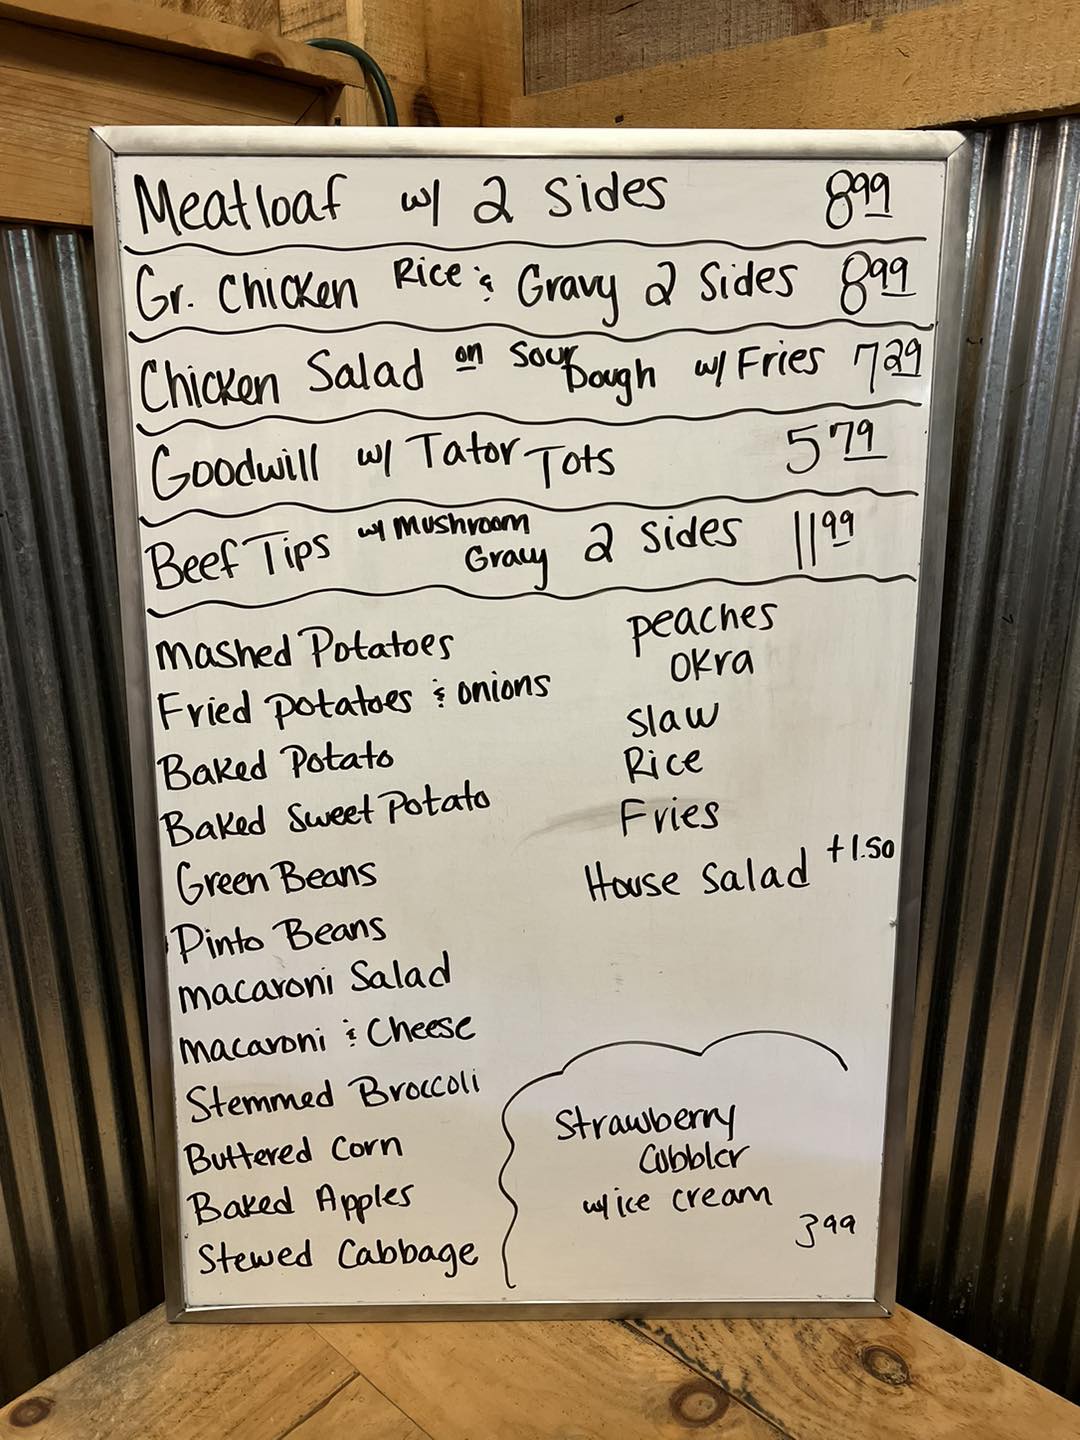 Meatloaf w/ 2 Sides 8.99
Gr. Chicken Rice & Gravy 2 Sides 8.99
Chicken Salad on Sour Dough w/ Fries 7.29
Goodwill w/ Tator Tots 5.79
Beef Tips w/ Mushroom Gravy 2 Sides 11.99
Mashed Potatoes
Fried Potatoes & onions
Baked Potato
Baked Sweet Potato
Green Beans
Pinto Beans
Macaroni Salad
Macaroni & Cheese
Stemmed Broccoli
Buttered Corn
Baked Apples
Stewed Cabbage
peaches
okra
Slaw
Rice
Fries
House Salad +1.50
Strawberry
Cobbler
w/ ice cream
3.99